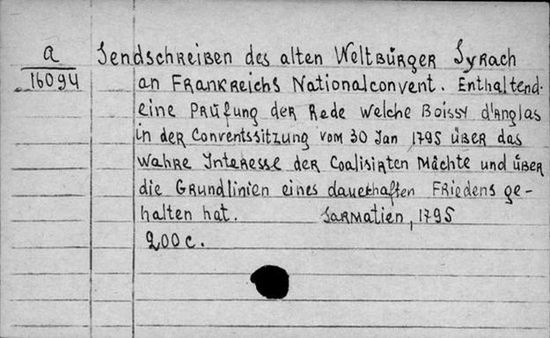 a
16094
Sendschreiben des alten Weltbürger Syrach
an Frankreichs Nationalconvent. Enthaltend
eine Prüfung der Rede welche Boissy d'Anglas
in der Conventssitzung vom 30 Jan 1795 über das
wahre Interesse der Coalisirten Mächte und über
die Grundlinien eines dauerhaften Friedens ge-
halten hat. Sarmatien, 1795
200 c.